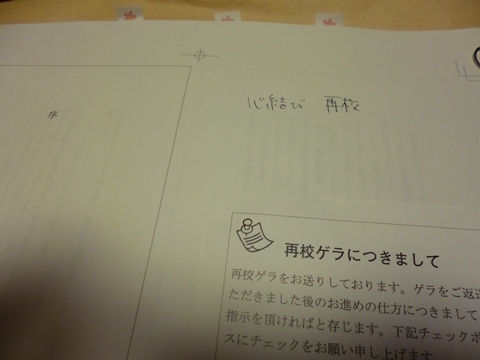 序
心結び 再校
再校ゲラにつきまして
再校ゲラをお送りしております。ゲラをご返送
ただきました後のお進めの仕方につきまして
指示を頂ければと存じます。下記チェックボ
スにチェックをお願い申し上げます